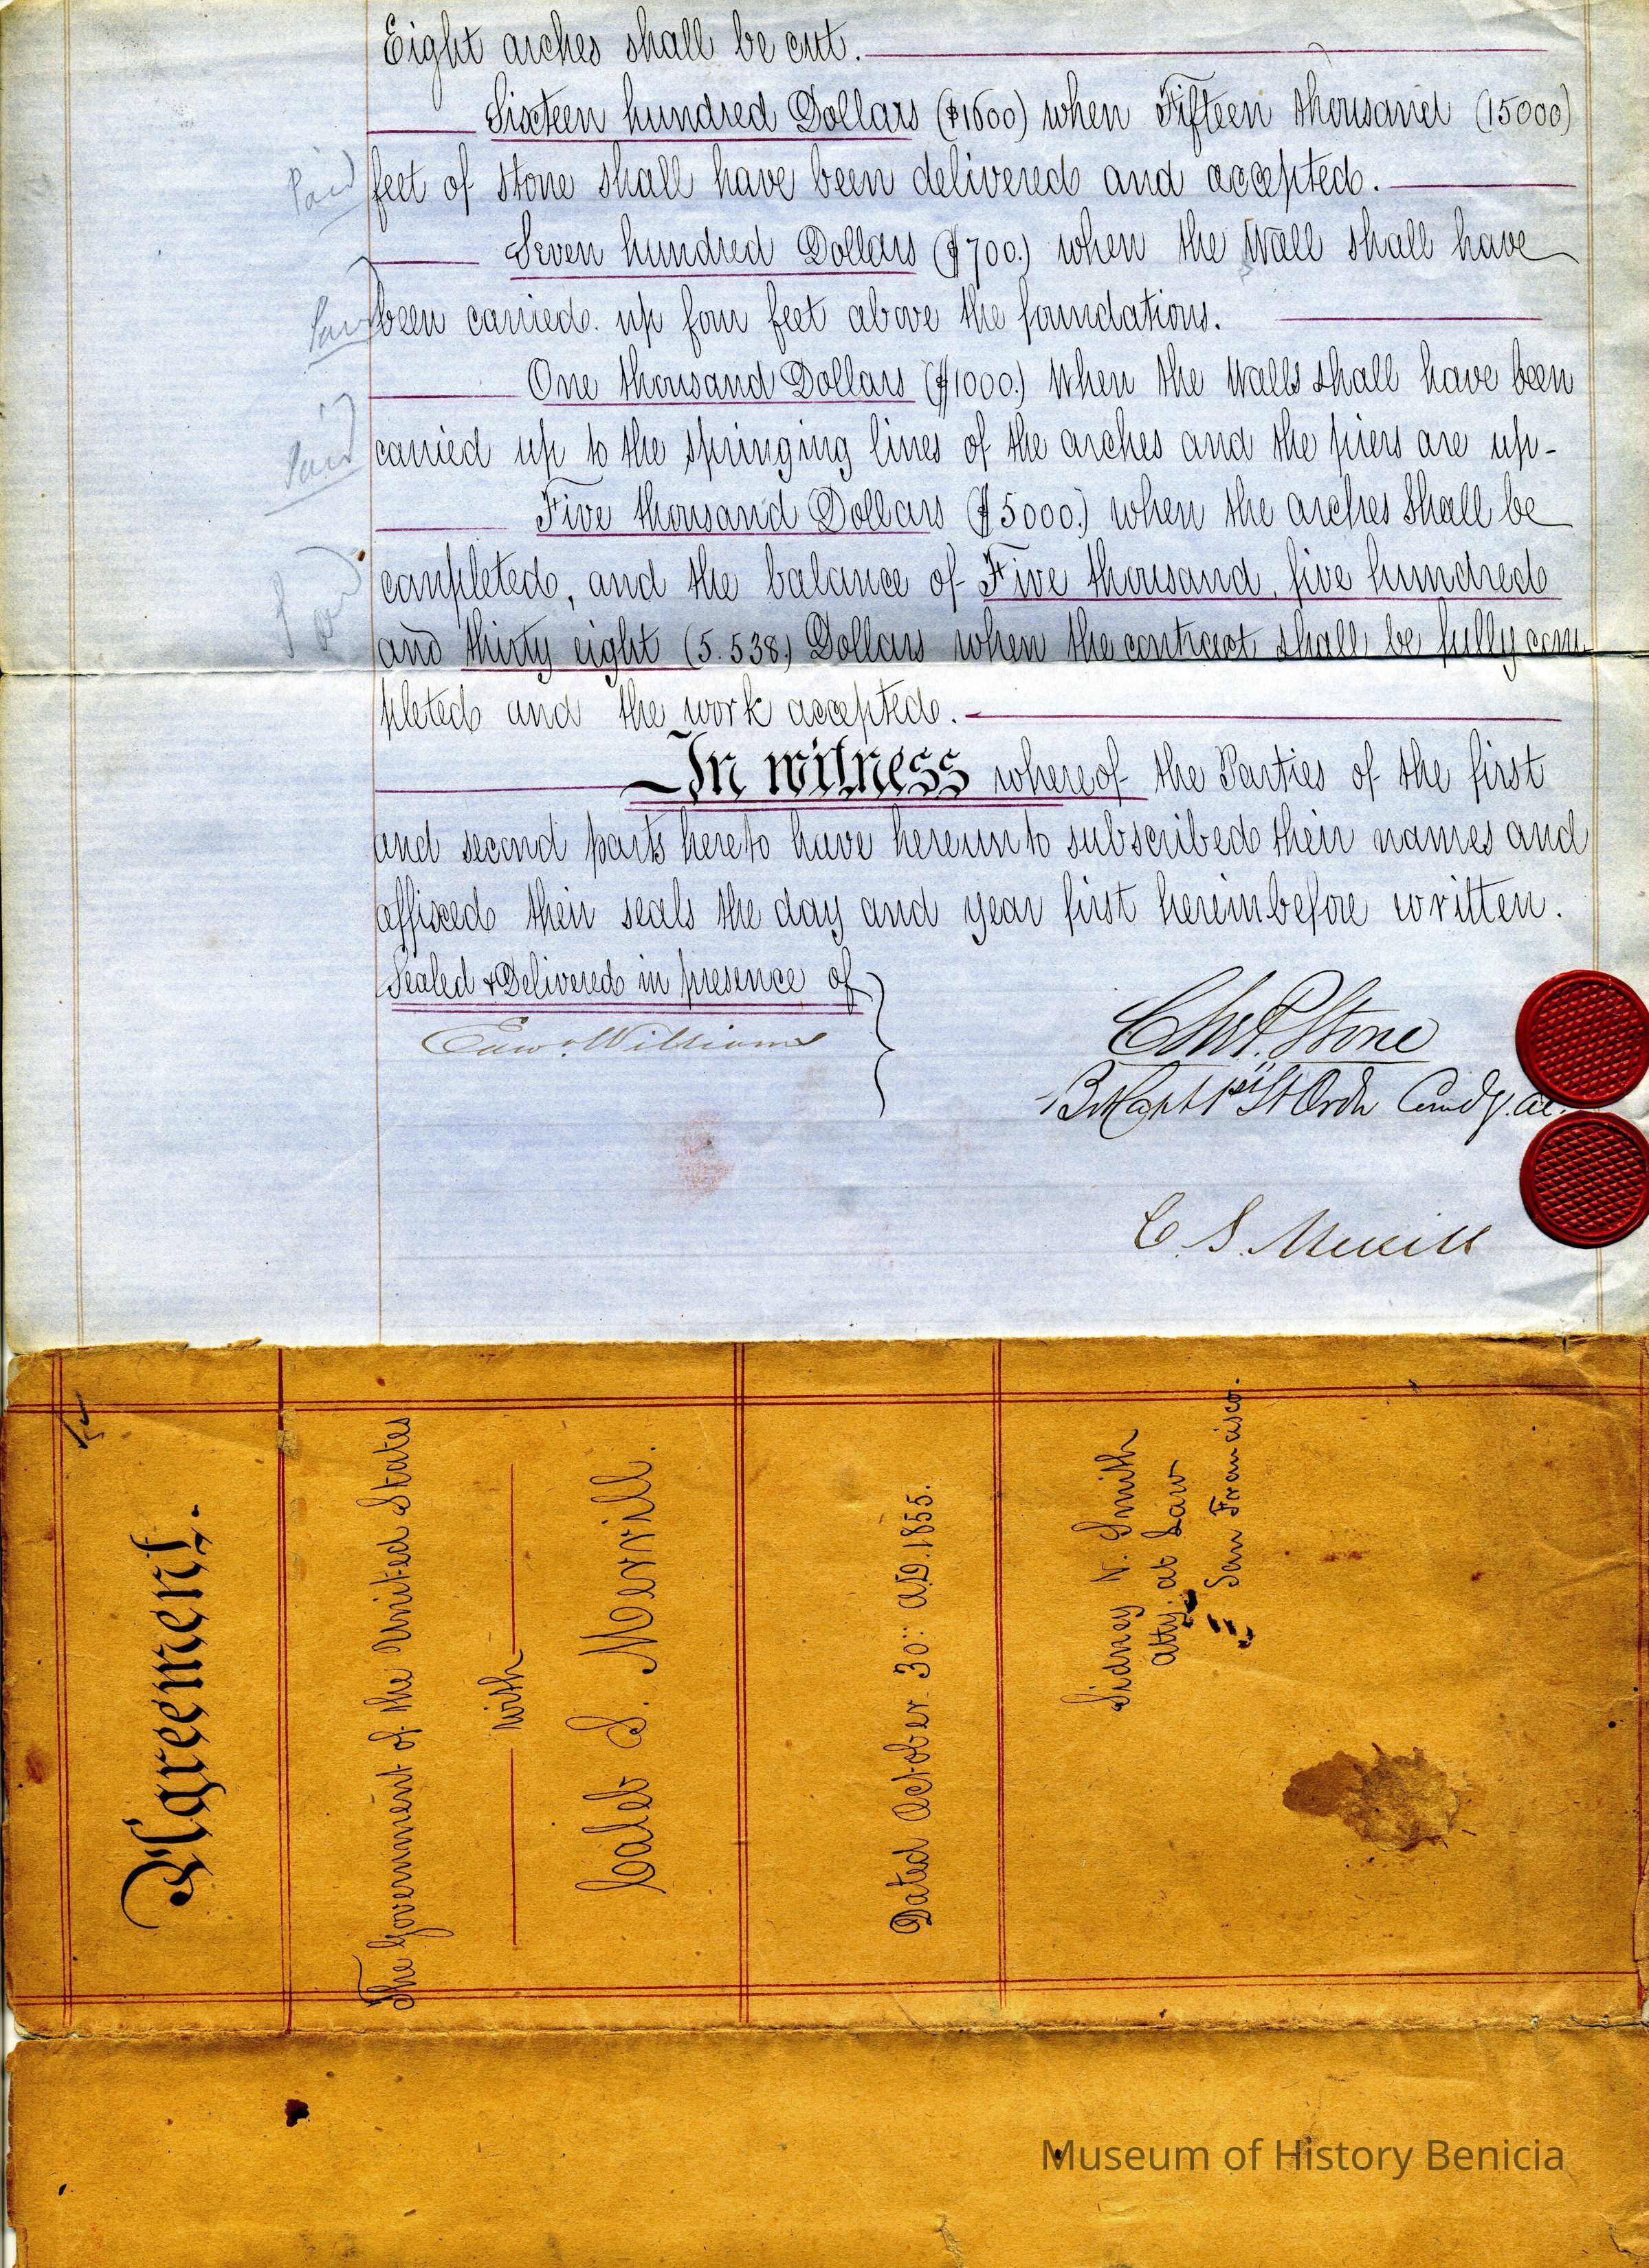 Eight arches shall be cut.
Sixteen hundred Dollars ($1600) when Fifteen thousand (15000)
Paid
feet of stone shall have been delivered and accepted.
Seven hundred Dollars ($700.) when the Wall shall have
Paid
been carried. up four feet above the foundations.
One thousand Dollars ($1000.) when the Walls shall have been
Paid
carried up to the springing lines of the arches and the piers are up-
Five thousand Dollars ($5000.) when the arches shall be
completed, and the balance of Five thousand, five hundred
Paid
and thirty eight (5.538.) Dollars when the contract shall be fully com
pleted and the work accepted.
In witness whereof the Parties of the first
and second parts hereto have hereunto subscribed their names and
affixed their seals the day and year first hereinbefore written.
Sealed & Delivered in presence of
Edwd. Williams
Chs. P. Stone
Bt Capt 1st Lt Ordn Comdg.
C. S. Merrill
Agreement.
The Government of the United States
with
Caleb S. Merrill.
Dated October 30th A.D. 1855.
Sidney V. Smith
Atty. at Law
San Francisco.
Museum of History Benicia